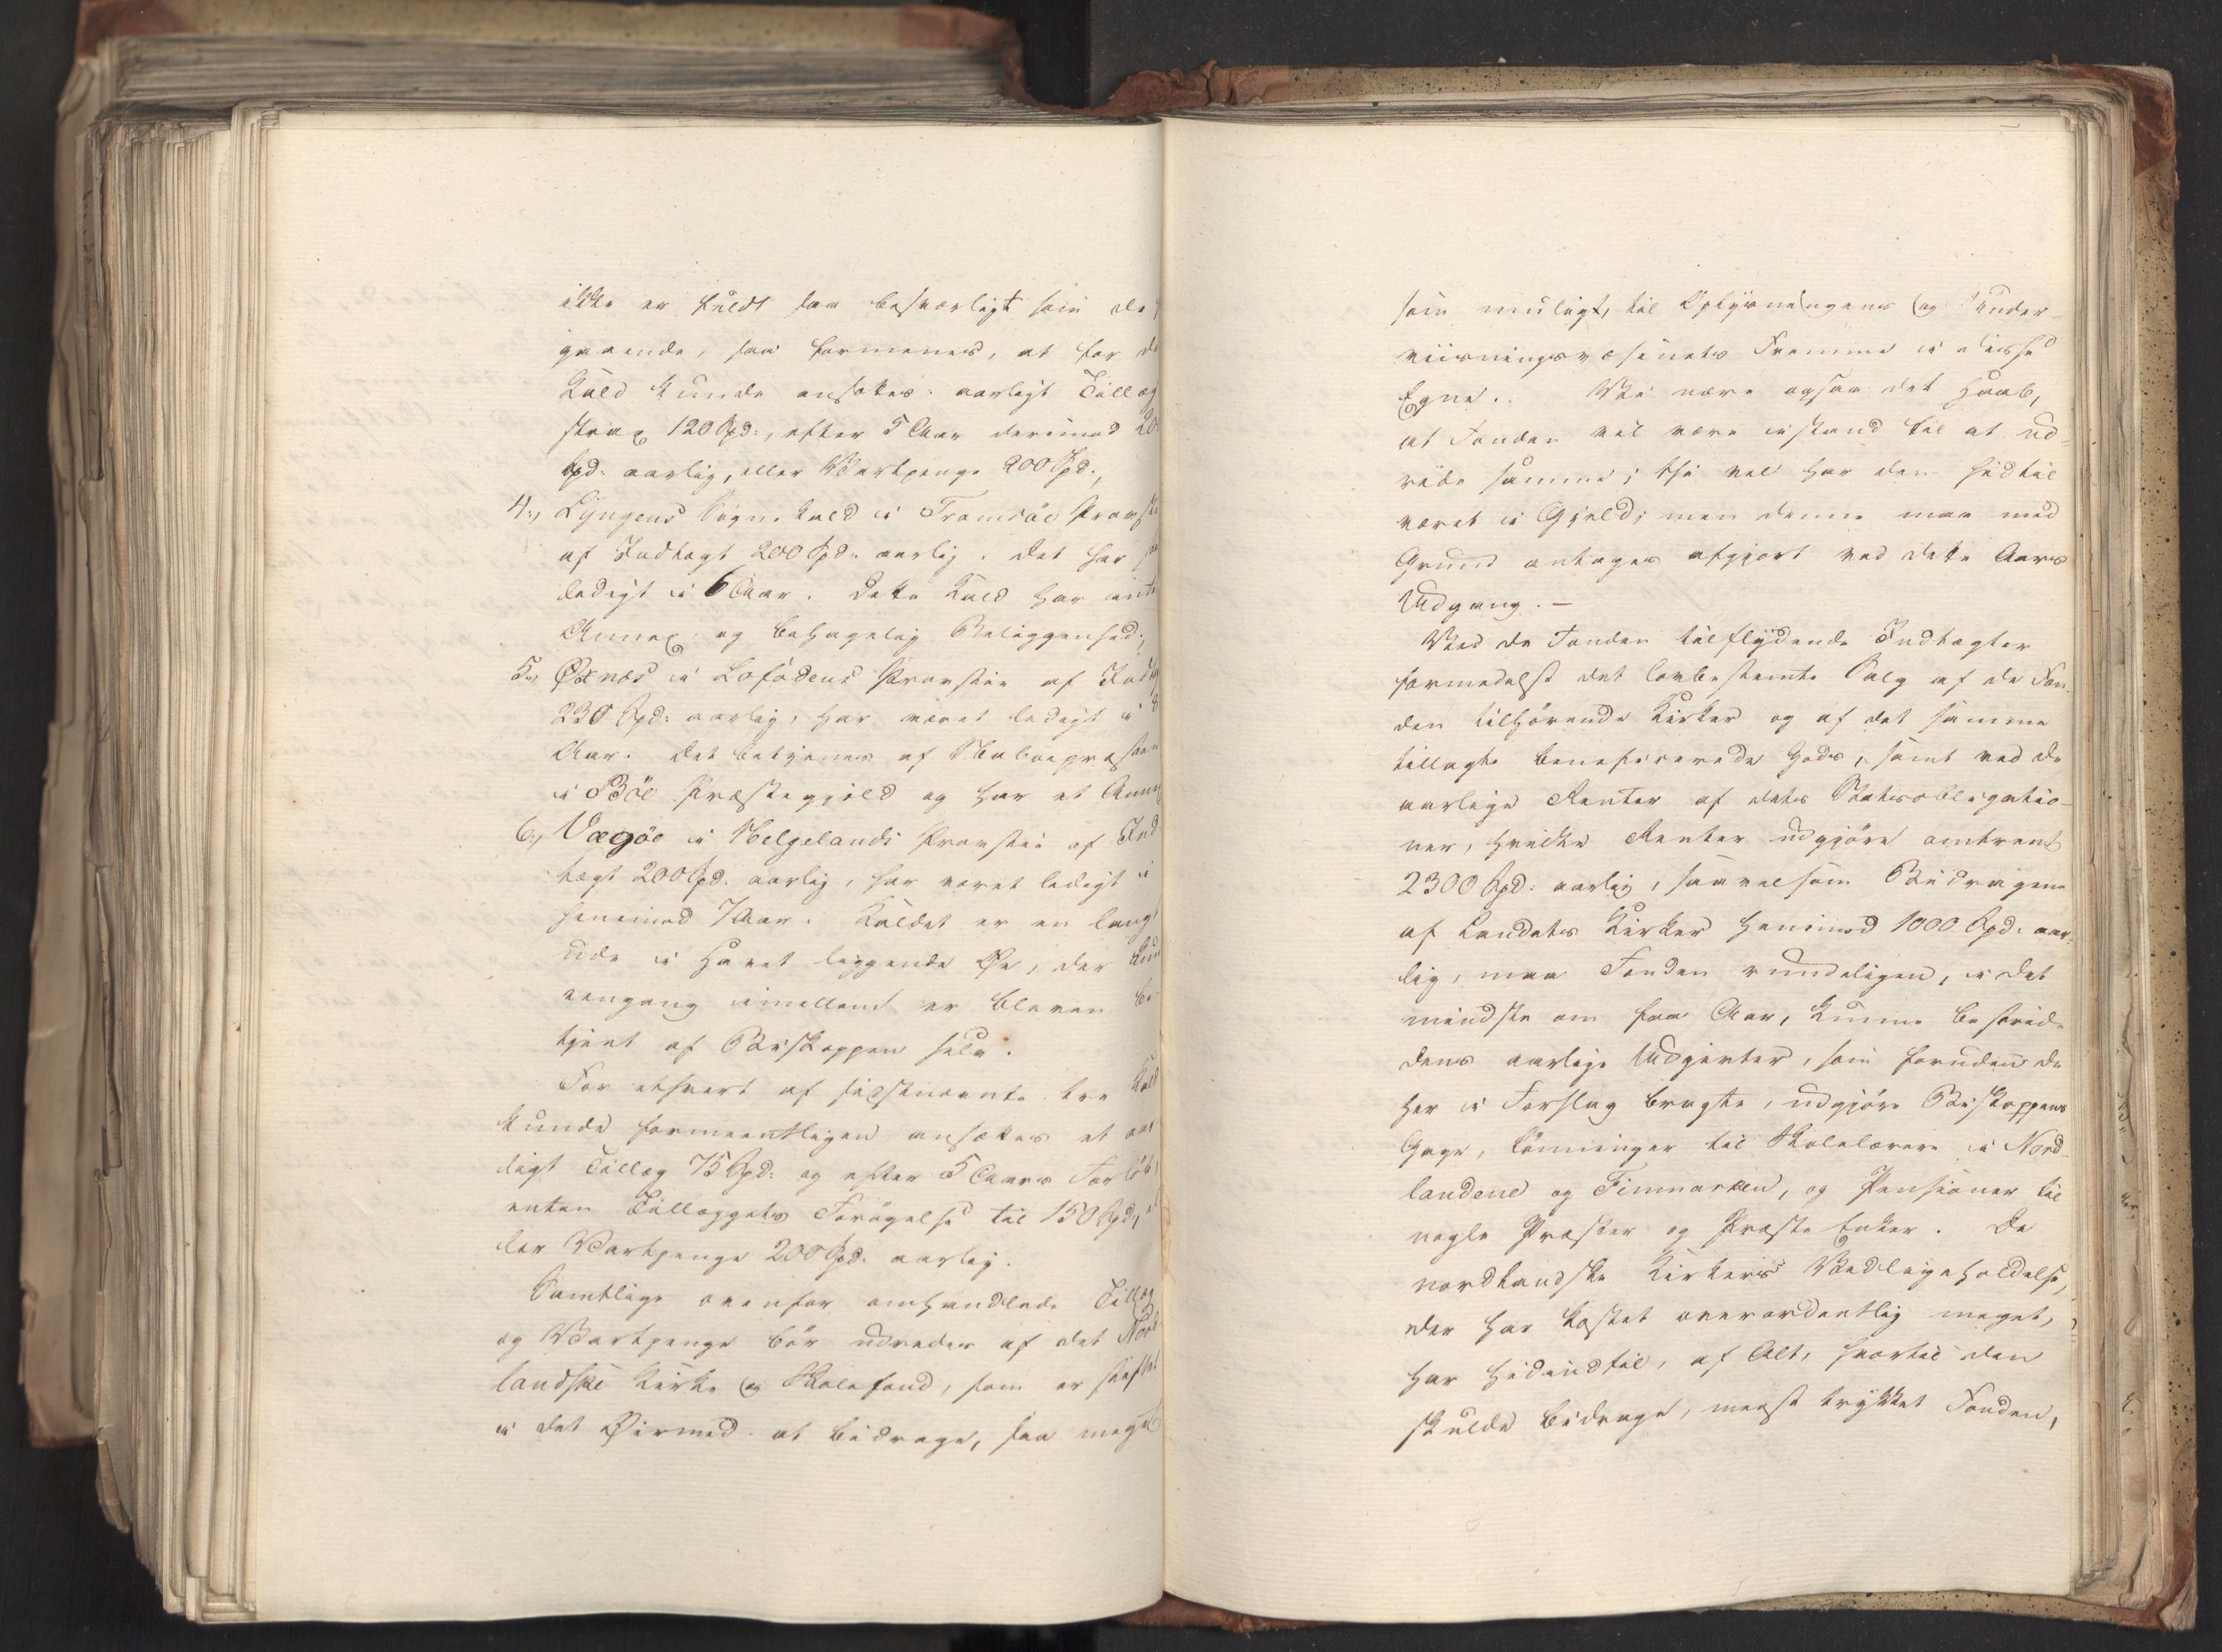 ikke er fuldt saa besværligt som de
gaaende, saa formenes, at for de
Kald kunde ansættes aarligt Tillæg
strax 120 Spd:, efter 5 Aar derimod 20
Spd: aarlig, eller Vartpenge 200 Spd.,
4., Lyngens Sognekald i Tromsöe Provstie
af Indtægt 200 Spd: aarlig. Det har
ledigt i 6 Aar. Dette Kald har intet
Annex og behagelig Beliggenhed.,
5., Öxnæs i Lofodens Provstie af Indtægt
230 Spd: aarlig, har været ledigt i 8
Aar. Det betjenes af Naboepræsten
i Böe Præstegjeld og har et Annex
6., Vægöe i Helgelands Provstie af Ind
tægt 200 Spd. aarlig, har været ledigt i
henimod 7 Aar. Kaldet er en langt
ude i Havet liggende Öe, der kun
eengang imellem er bleven be
tjent af Biskoppen selv.
For ethvert af sidstnævnte tre Kald
kunde formeentligen ansættes et aar
ligt Tillæg 75 Spd: og efter 5 Aars Forlöb,
enten Tillæggets Forögelse til 150 Spd., el
ler Vartpenge 200 Spd. aarlig.
Samtlige ovenfor omhandlede Tillæg
og Vartpenge bör udredes af det Nord
landske Kirke og Skolefond, som er stiftet
i det Öiemed at bidrage, saa meget
som muligt, til Oplysningens og Under-
viisningsvæsenets Fremme i disse
Egne. Vi nære ogsaa det Haab,
at Fonden vil være istand til at ud-
rede samme; thi vel har den hidtil
været i Gjeld; men denne maa med
Grund antages afgjort ved dette Aars
Udgang. —
Ved de Fonden tilflydende Indtægter
formedelst det lovbestemte Salg af de Fon-
den tilhörende Kirker og af det samme
tillagte beneficerede Gods, samt ved de
aarlige Renter af dets Statsobligatio-
ner, hvilke Renter udgjöre omtrent
2300 Spd: aarlig, saavelsom Bidragene
af Landets Kirker henimod 1000 Spd: aar-
lig, maa Fonden rundeligen, i det
mindste om faa Aar, kunne bestride
dens aarlige Udgivter, som foruden de
her i Forslag bragte, udgjöre Biskoppens
Gage, Lönninger til Skolelærere i Nord-
landene og Finmarken, og Pensioner til
nogle Præster og Præste Enker. De
nordlandske Kirkers Vedligeholdelse,
der har kostet overordentlig meget,
har hidindtil, af Alt, hvortil den
skulde bidrage, meest trykket Fonden,